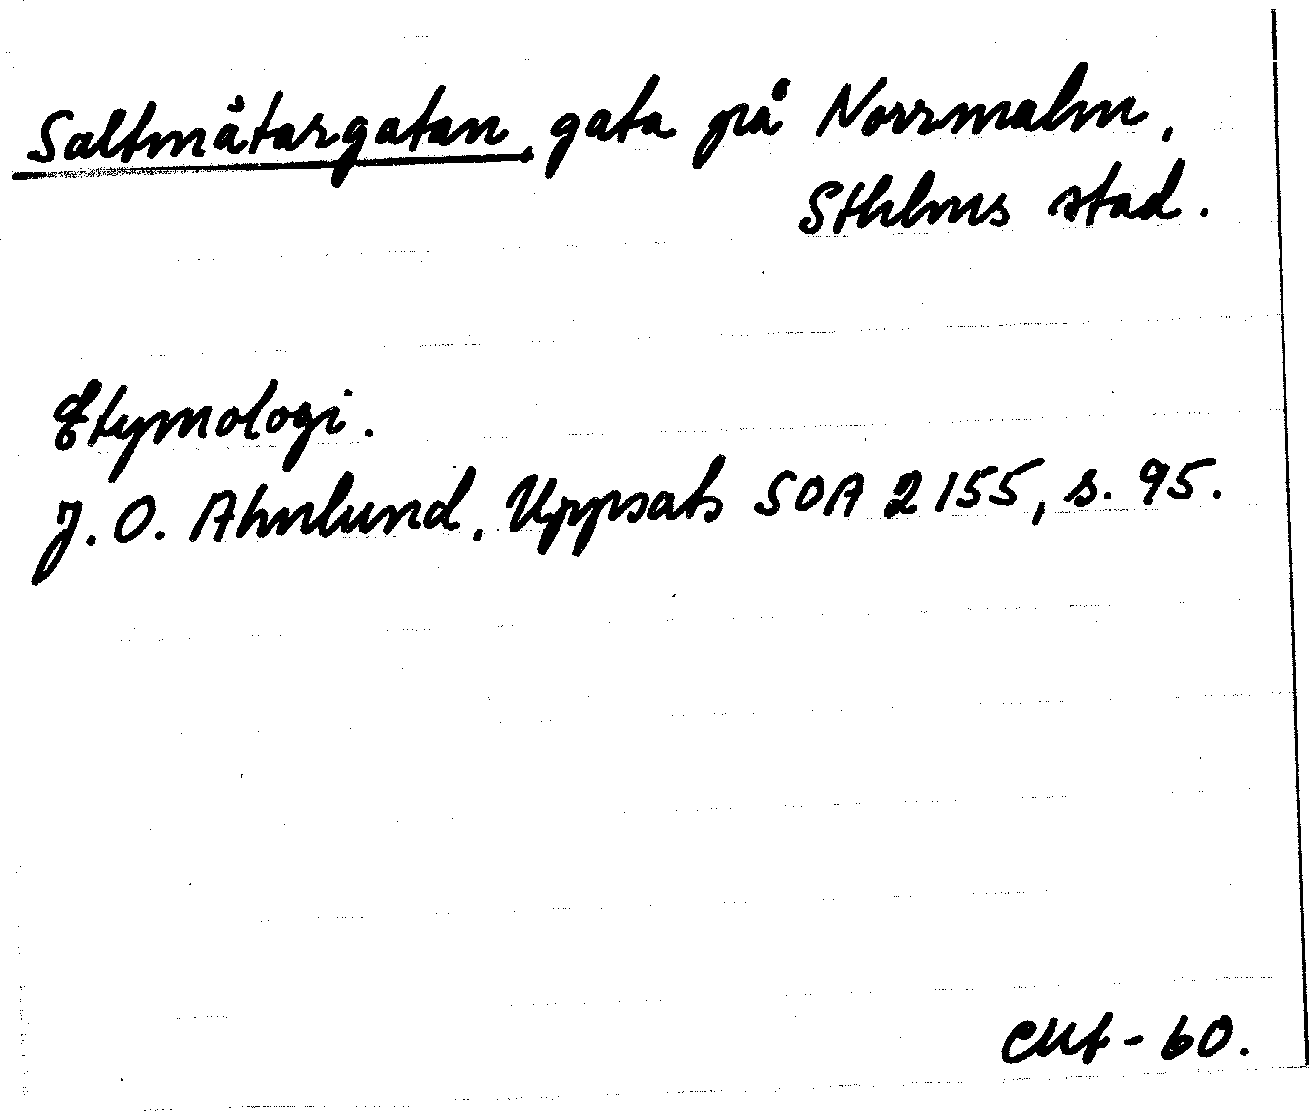 Saltmätargatan, gata på Norrmalm,
Sthlms stad.
Etymologi.
J. O. Ahnlund, Uppsats SOA 2155, s. 95.
-60.